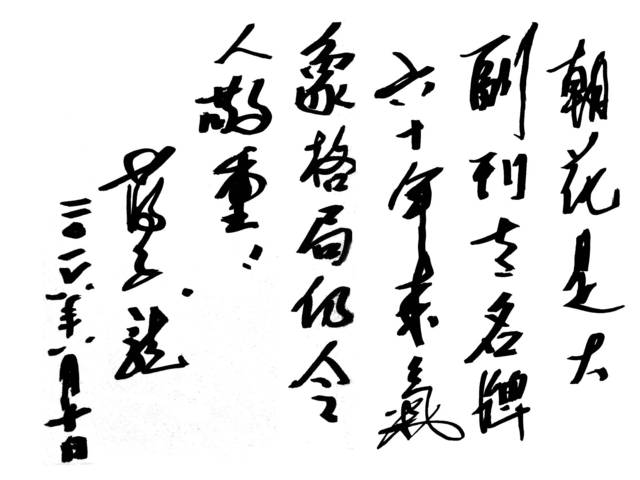 朝花是大
副刊老名牌
六十年来氣
象格局仍令
人敬重
蔣子龍
二〇一六年八月十日